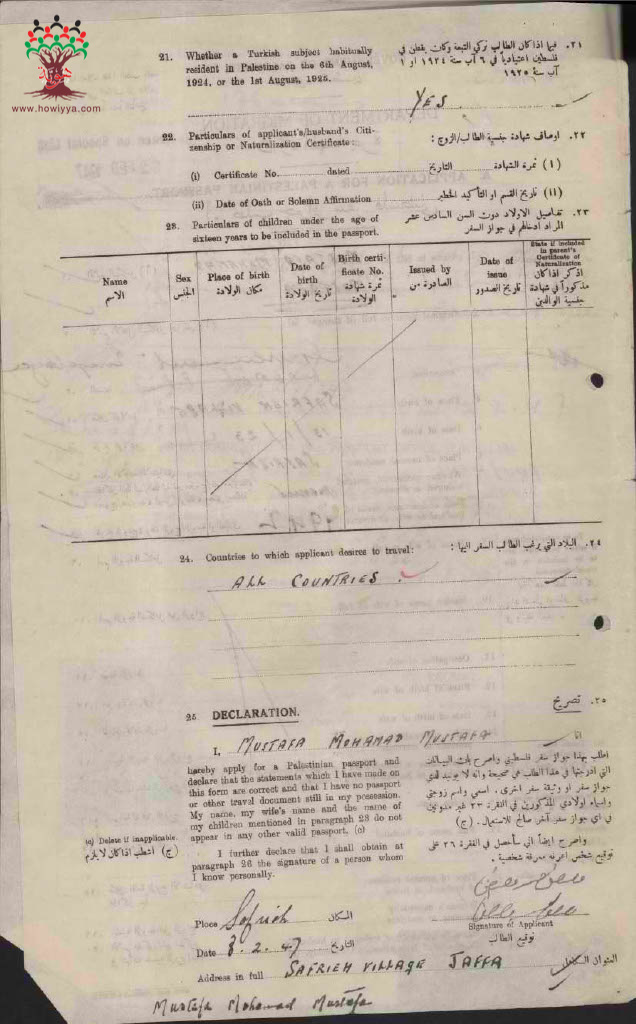 هوية
www.howiyya.com
21. Whether a Turkish subject habitually
resident in Palestine on the 6th August,
1924, or the 1st August, 1925.
٢١. فيما اذا كان الطالب تركي التبعة وكان يقطن في
فلسطين اعتيادياً في ٦ آب سنة ١٩٢٤ او ١
آب سنة ١٩٢٥
YES
22. Particulars of applicant's/husband's Citi-
zenship or Naturalization Certificate:
٢٢. اوصاف شهادة جنسية الطالب/الزوج:
(i) Certificate No. dated
(١) نمرة الشهادة التاريخ
(ii) Date of Oath or Solemn Affirmation
(١١) تاريخ القسم او التأكيد الخطير
23. Particulars of children under the age of
sixteen years to be included in the passport.
٢٣. تفاصيل الاولاد دون السن السادس عشر
المراد ادخالهم في جواز السفر
Name
الاسم
Sex
الجنس
Place of birth
مكان الولادة
Date of
birth
تاريخ الولادة
Birth certi-
ficate No.
نمرة شهادة
الولادة
Issued by
الصادرة من
Date of
issue
تاريخ الصدور
State if included
in parent's
Certificate of
Naturalization
اذكر اذا كان
مذكوراً في شهادة
جنسية الوالدين
24. Countries to which applicant desires to travel:
٢٤. البلاد التي يرغب الطالب السفر اليها:
ALL COUNTRIES.
25 DECLARATION.
٢٥. تصريح
I, MUSTAFA MOHAMAD MUSTAFA
انا
hereby apply for a Palestinian passport and
declare that the statements which I have made on
this form are correct and that I have no passport
or other travel document still in my possession.
My name, my wife's name and the name of
my children mentioned in paragraph 23 do not
appear in any other valid passport. (c)
اطلب بهذا جواز سفر فلسطيني واصرح بان البيانات
التي ادرجتها في هذا الطلب هي صحيحة وانه لا يوجد لدي
جواز سفر او وثيقة سفر اخرى، اسمي واسم زوجتي
واسماء اولادي المذكورين في الفقرة ٢٣ غير مدونين
في اي جواز سفر آخر صالح للاستعمال. (ج)
(c) Delete if inapplicable.
(ج) اشطب اذا كان لا يلزم
I further declare that I shall obtain at
paragraph 26 the signature of a person whom
I know personally.
واصرح ايضاً اني سأحصل في الفقرة ٢٦ على
توقيع شخص اعرفه معرفة شخصية.
Place Safrieh المكان
Signature of Applicant
توقيع الطالب
Date 3.2.47 التاريخ
Address in full SAFRIEH VILLAGE JAFFA العنوان الكامل
Mustafa Mohamad Mustafa